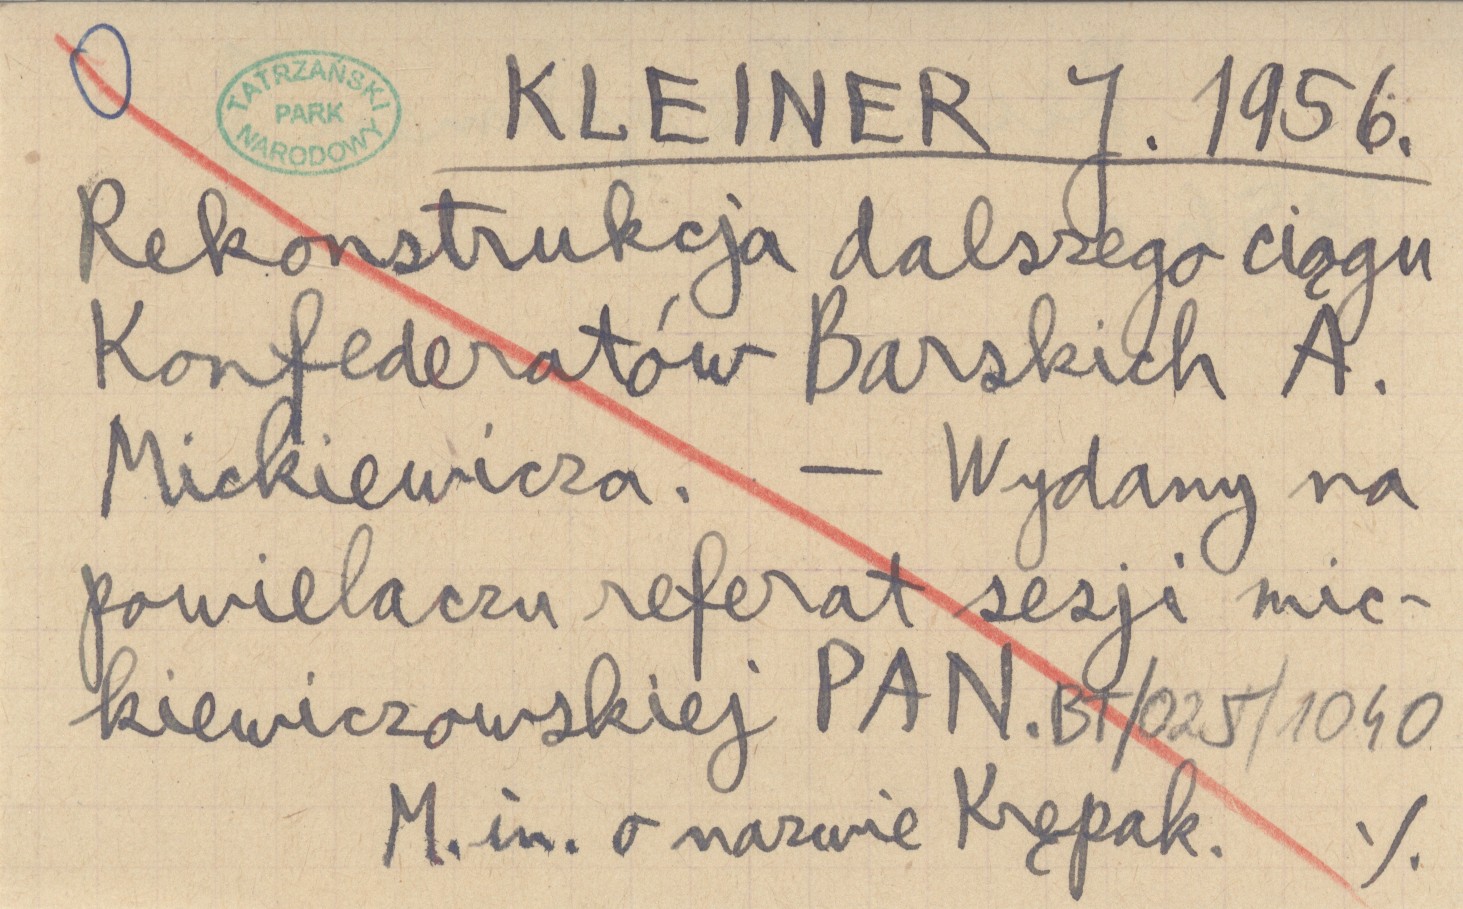 TATRZAŃSKI
PARK
NARODOWY
KLEINER J. 1956.
Rekonstrukcja dalszego ciągu
Konfederatów Barskich A.
Mickiewicza. — Wydany na
powielaczu referat sesji mic-
kiewiczowskiej PAN. BT/025/1040
M. in. o nazwie Krępak. ./.